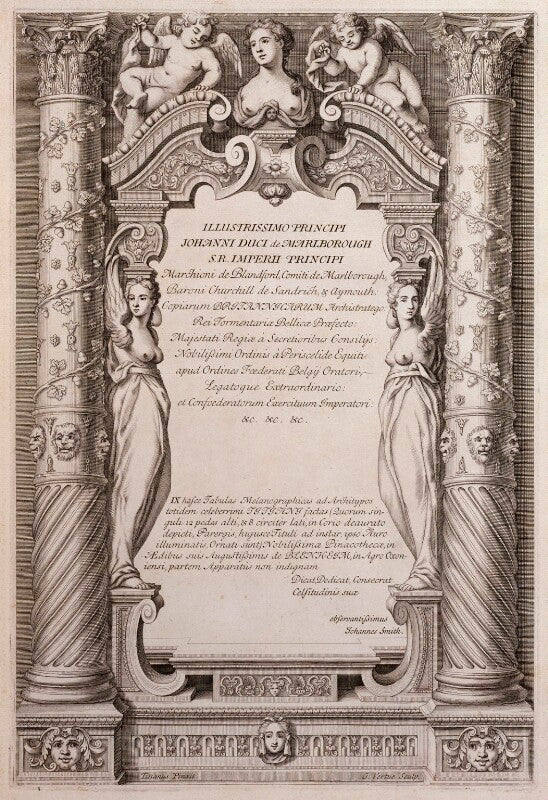 ILLUSTRISSIMO PRINCIPI
JOHANNI DUCI de MARLBOROUGH
S.R. IMPERII PRINCIPI
Marchioni de Blandford, Comiti de Marlborough,
Baroni Churchill de Sandrich, & Aymouth.
Copiarum BRITANNICARUM Archistratego.
Rei Tormentariæ Bellicæ Præfecto:
Majestati Regiæ à Secretioribus Consilijs:
Nobilissimi Ordinis à Periscelide Equiti
apud Ordines Fœderati Belgij Oratori,
Legatoque Extraordinario:
et Confœderatorum Exercituum Imperatori:
&c. &c. &c.
IX hasce Tabulas Melanographicas ad Architypos
totidem celeberrimi TITIANI factas (Quorum sin-
guli 12 pedes alti, & 8 circiter lati, in Corio deaurato
depicti, Parergis, hujusce Tituli ad instar, ipso Auro
illuminatis, Ornati sunt) Nobilissimæ Pinacothecæ, in
Ædibus suis Augustissimis de BLENHEIM, in Agro Oxon-
iensi, partem Apparatus non indignam
Dicat, Dedicat, Consecrat
Celsitudinis suæ
observantissimus
Johannes Smith.
Titianus Pinxit
G. Vertue Sculp.